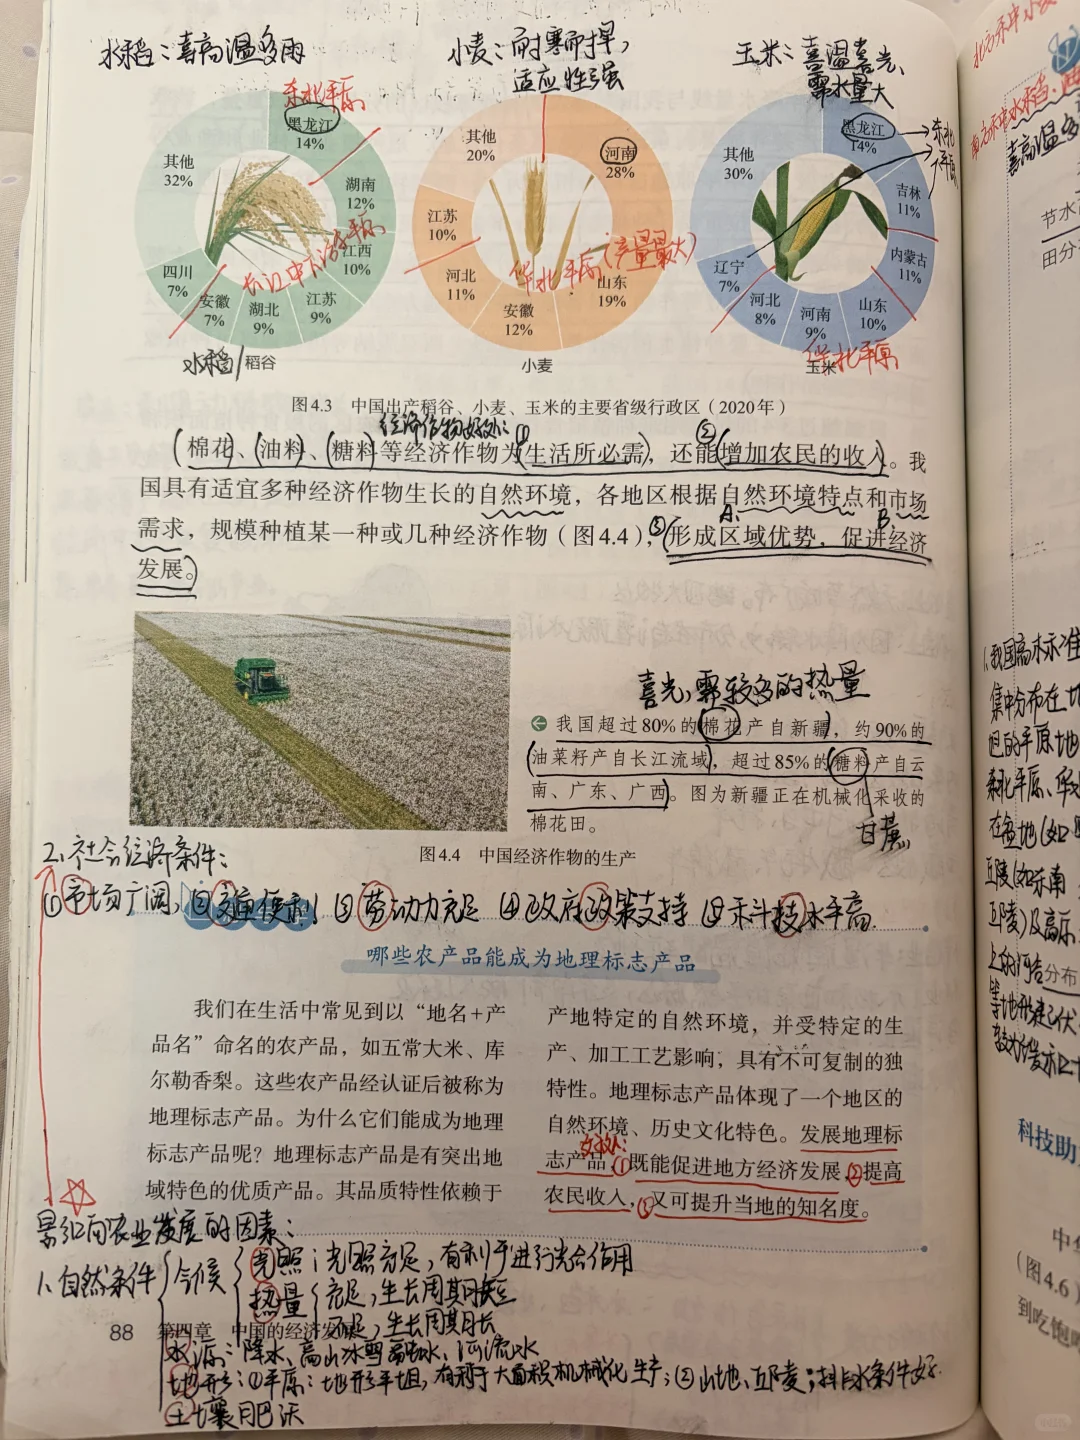 水稻：喜高温多雨
小麦：耐寒耐旱，
适应性强
玉米：喜温喜光、
需水量大
东北平原
黑龙江
14%
湖南
12%
江西
10%
江苏
9%
湖北
9%
安徽
7%
四川
7%
其他
32%
长江中下游平原
水稻/稻谷
河南
28%
山东
19%
安徽
12%
河北
11%
江苏
10%
其他
20%
华北平原(产量最大)
小麦
黑龙江
14%
吉林
11%
内蒙古
11%
山东
10%
河南
9%
河北
8%
辽宁
7%
其他
30%
东北
平原
华北平原
玉米
图4.3 中国出产稻谷、小麦、玉米的主要省级行政区（2020年）
经济作物好处：①
②
棉花、油料、糖料等经济作物为生活所必需，还能增加农民的收入。我
国具有适宜多种经济作物生长的自然环境，各地区根据自然环境特点和市场
A. B.
需求，规模种植某一种或几种经济作物（图4.4），③形成区域优势，促进经济
发展。
喜光，需较多的热量
我国超过80%的棉花产自新疆，约90%的
油菜籽产自长江流域，超过85%的糖料产自云
南、广东、广西。图为新疆正在机械化采收的
棉花田。
甘蔗
图4.4 中国经济作物的生产
2.社会经济条件：
①市场广阔，②交通便利 ③劳动力充足 ④政府政策支持 ⑤科技水平高.
哪些农产品能成为地理标志产品
我们在生活中常见到以“地名+产
品名”命名的农产品，如五常大米、库
尔勒香梨。这些农产品经认证后被称为
地理标志产品。为什么它们能成为地理
标志产品呢？地理标志产品是有突出地
域特色的优质产品。其品质特性依赖于
产地特定的自然环境，并受特定的生
产、加工工艺影响，具有不可复制的独
特性。地理标志产品体现了一个地区的
自然环境、历史文化特色。发展地理标
志产品，①既能促进地方经济发展，②提高
农民收入，③又可提升当地的知名度。
影响农业发展的因素：
1.自然条件
气候
光照：光照充足，有利于进行光合作用
热量
充足，生长周期短
不足，生长周期长
88 第四章 中国的经济发展
水源：降水、高山冰雪融水、河流水
地形：①平原：地形平坦，有利于大面积机械化生产；②山地、丘陵：排水条件好.
土壤肥沃
喜高温多
节水
田分
1.我国高标准
集中分布在地
坦的平原地
东北平原、华
在盆地(如
丘陵(如东南
丘陵)及高原
上的河
分布
等地形起伏
较大
科技助
中华
（图4.6）
到吃饱